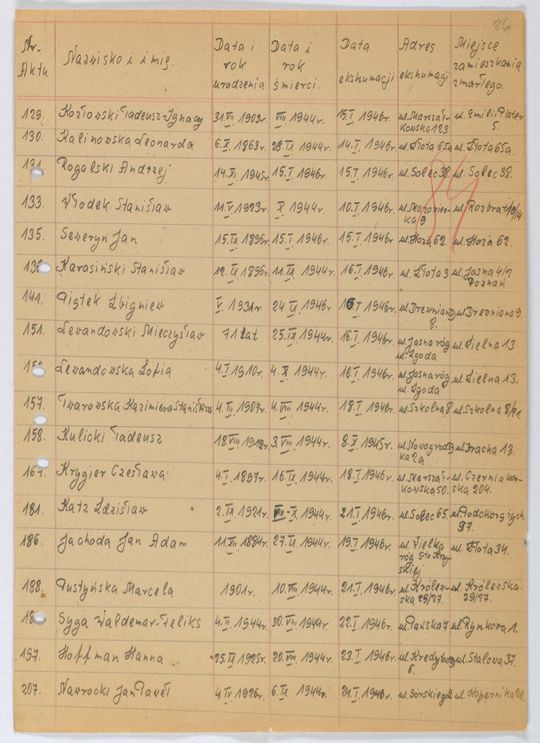 86
Nr. Aktu Nazwisko i imię. Data i rok urodzenia. Data i rok śmierci. Data ekshumacji Adres ekshumacji Miejsce zamieszkania zmarłego.
129. Kozłowski Tadeusz-Ignacy 31.VII 1903r. VIII 1944r. 15.I 1946r. ul. Marszałkowska 123 ul. Emilii Plater 5.
130. Kalinowska Leonarda 6.X 1863r. 28.IX 1944r. 14.I 1946r. ul. Złota 65a ul. Złota 65a.
131. Rogalski Andrzej 14.XI 1945r. 15.I 1946r. 15.I 1946r. ul. Solec 38. ul. Solec 38.
133. Włodek Stanisław 11.V 1923r. X 1944r. 10.I 1946r. ul. Mazowiecka 9 ul. Rozbrat
135. Seweryn Jan 15.IX 1896r. 15.I 1946r. 15.I 1946r. ul. Hoża 62. ul. Hoża 62.
Karasiński Stanisław 12.IX 1896r. 11.IX 1944r. 16.I 1946r. ul. Złota 3 ul. Jasna Poznań
141. Piątek Zbigniew V 1931r. 24.IX 1946r. 16.I 1946r. ul. Drewniana 8. ul. Drewniana 9
151. Lewandowski Mieczysław 71 lat 25.IX 1944r. 16.I 1946r. ul. Jasna róg ul. Zgoda ul. Zielna 13
Lewandowska Zofia 4.I 1910r. 4.X 1944r. 16.I 1946r. ul. Jasna róg ul. Zgoda ul. Zielna 13.
157. Twarowska Kazimiera Stanisława 4.III 1907r. 4.VIII 1944r. 18.I 1946r. ul. Szkolna 8 ul. Szkolna
158. Kulicki Tadeusz 18.VIII 3.VIII 1944r. 8.X 1945r. ul. Nowogrodzka ul. Bracka 13.
Krygier Czesława 4.I 1897r. 16.IX 1944r. 18.I 1946r. ul. Marszałkowska 50. ul. Czerniakowska 204.
181. Katz Zdzisław 2.IX 1921r. VIII-X 1944r. 21.I 1946r. ul. Solec 65. ul. Podchorążych 97.
186. Jachoda Jan Adam 11.XII 1894r. 27.IX 1944r. 19.I 1946r. ul. Wielka róg Sto Krzyskiej ul. Złota 34.
188. Pustyńska Marcela 1901r. 10.VIII 1944r. 21.I 1946r. ul. Królewska 29/27. ul. Królewska 29/27.
Syga Waldemar-Feliks 4.II 1944r. 30.VIII 1944r. 22.I 1946r. ul. Pańska 7 ul. Rynkowa 1.
197. Hoffman Hanna 25.IX 1925r. 20.VIII 1944r. 23.I 1946r. ul. Kredytowa 6. ul. Stalowa 37.
207. Nawrocki Jan Paweł 4.IV 1926r. 6.IX 1944r. 24.I 1946r. ul. Kopernika
84